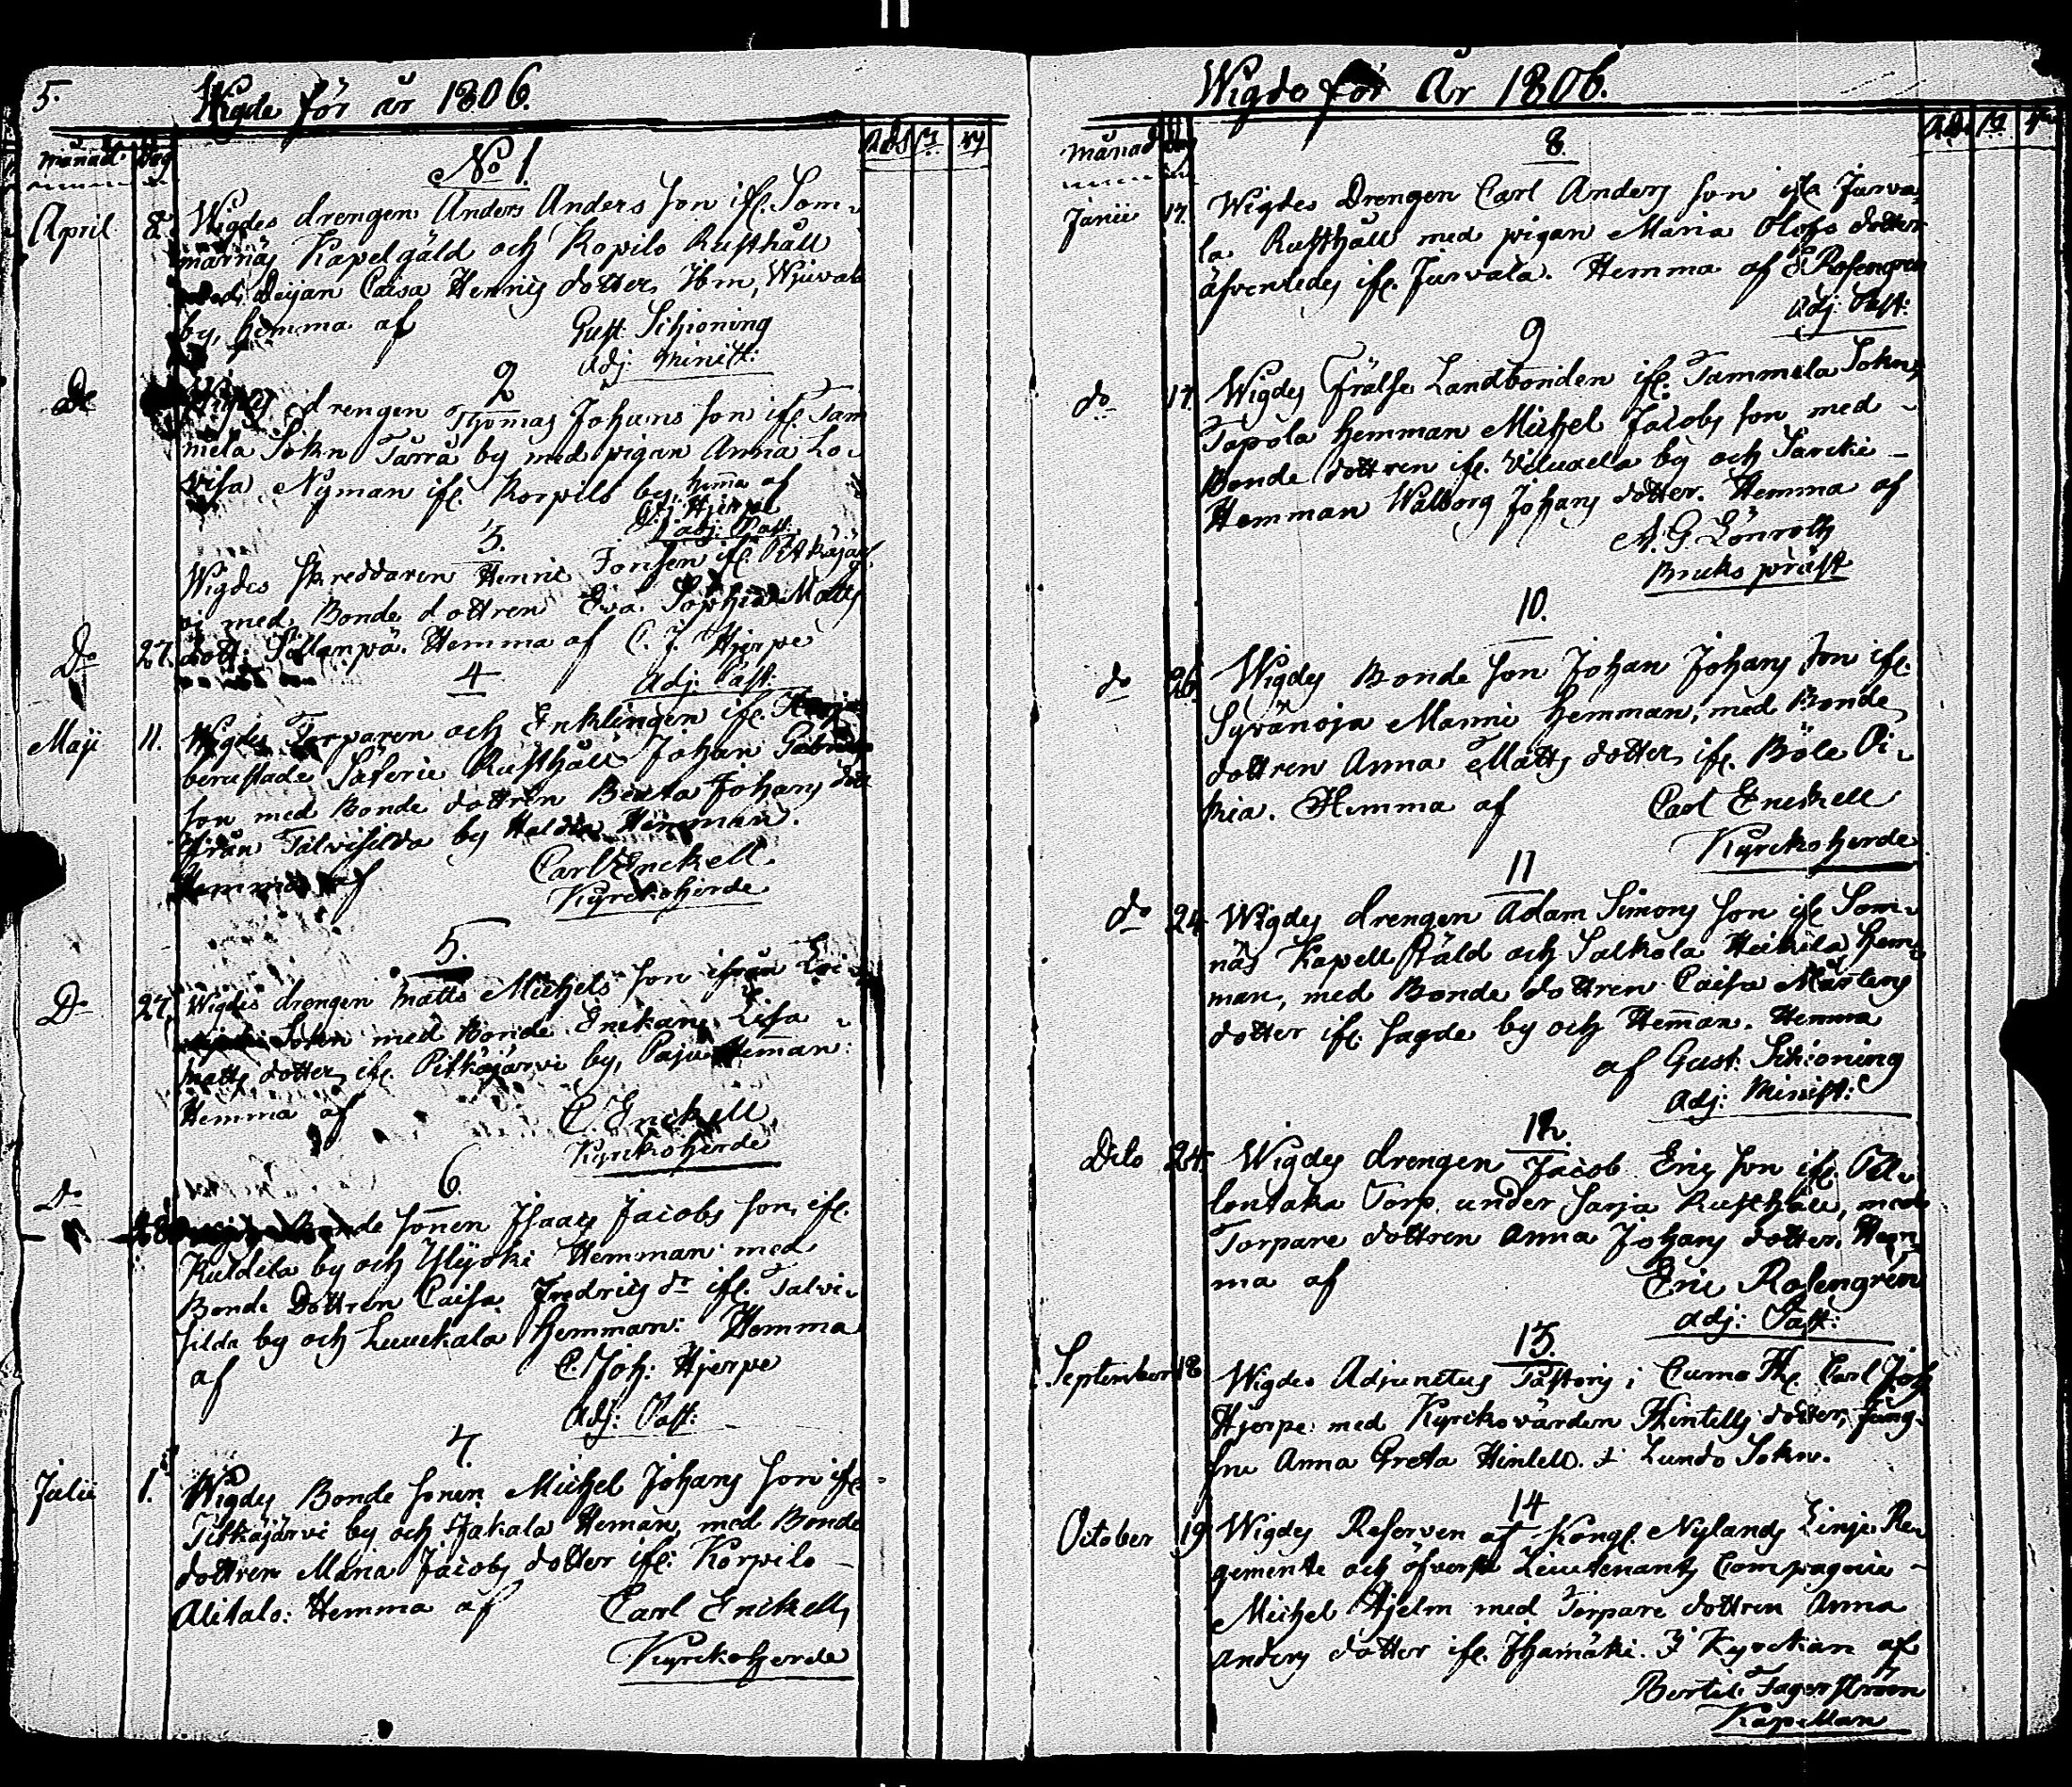 5.
Wigde för år 1806.
månad dag
No 1.
April 8. Wigdes drengen Anders Anders son ifr. Som-
marnäs Kapelgäld och Kopilo Rusthåll
med Deijan Caisa Henrics dotter ibm,
by, hemma af Gust. Schioning
adj: Minist:
2
Do drengen Thomas Johans son ifr. Tam
mela Sokn Tarra by med pigan Anna Lo-
visa Nyman ifr. Korpilo by, hemma af
C. J. Hjerpe
adj: Past:
3.
Wigdes skreddaren Henric Fonsen ifr. Pitkäjär
vi med Bonde dottren Eva Sophia Matts
Do 27. dott: Sillanpä. Hemma af C. J. Hjerpe
Adj: Past:
4
Maji 11. Wigdes Torparen och Enklingen ifr.
berustade Saferie Rusthåll Johan Gabriels
son med Bonde dottren Beata Johans dott
ifrån Talvisilda by Hemman.
Hemma af Carl Enckell
Kyrckoherde
5.
Do 27. Wigdes drengen Matts Michels son ifrån Loi-
Sokn med Bonde Enckan Lisa
Matts dotter ifr. Pitkäjärvi by, Paju Heman:
Hemma af C. Enckell
Kyrckoherde
6.
Do 28 Bonde sonen Isaac Jacobs son, ifr.
Kuldila by och Ylijoki Hemman med
Bonde Dottren Caisa Fredrics dr ifr. Talvi-
silda by och Luuckala Hemman: Hemma
af C. Joh: Hjerpe
Adj: Past:
7.
Julii 1. Wigdes Bonde sonen Michel Johans son ifr.
Pitkäjärvi by och Jakala Heman, med Bonde
dottren Maria Jacobs dotter ifr: Korpilo
Alitalo: Hemma af Carl Enckell,
Kyrckoherde
Wigde för År 1806.
månad dag
8.
Junii 17. Wigdes Drengen Carl Anders son ifr Jurva
la Rusthåll med pigan Maria Olofs dotter
äfvenledes ifr. Jurvala. Hemma af E Rosengren
Adj: Past:
9
do 17. Wigdes Frälse Landbonden ifr. Tammela Sokn,
Tapola hemman Michel Jacobs son med
Bonde dottren ifr. Viluxela by och Sarcki
Hemman Walborg Johans dotter. Hemma af
A. G. Lönroth
Bruks präst
10.
do 26. Wigdes Bonde son Johan Johans son ifr.
Syvänoja Manni hemman, med Bonde
dottren Anna Matts dotter ifr. Böle Oi-
kia. Hemma af Carl Enckell
Kyrckoherde
11
do 24 Wigdes drengen Adam Simons son ifr Som-
näs Kapell Gäld och Salkola Heikila hem-
man, med Bonde dottren Caisa Mårtens
dotter ifr. Sagde by och Heman. Hemma
af Gust: Schioning
Adj: Minist:
12.
Dito 24. Wigdes drengen Jacob Erics son ifr. Oll-
lontaka Torp under Sarja Rusthåll, med
Torpare dottren Anna Johans dotter. Hem
ma af Eric Rosengrén
Adj: Past:
13.
September 18 Wigdes Adjunctus Pastoris i Cumo Hr. Carl Joh
Hjerpe med Kyrckovärden Hintells dotter, Jung-
fru Anna Greta Hintell. i Lundo Sokn.
14
October 19 Wigdes Reserven af Kongl. Nylands Linje Re-
gemente och öfverste Lieutenants Compagnie
Michel Hjelm med Torpare dottren Anna
Anders dotter ifr. Ihamäki. I Kyrckan af
Bertil Fagerström
Kapellan